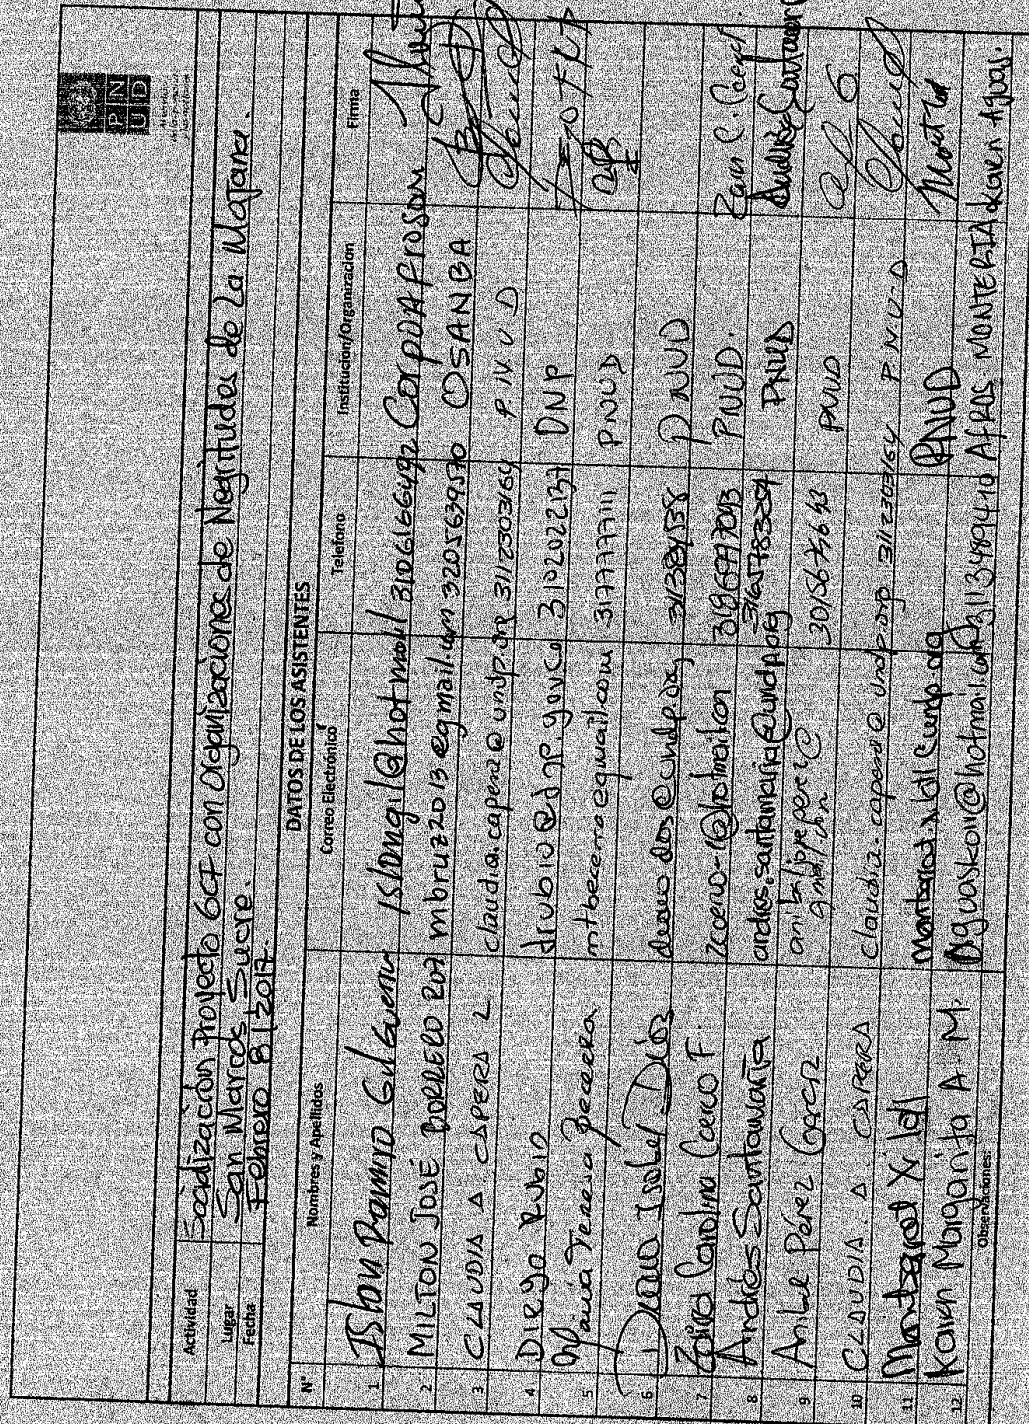 P N
U D
Actividad Socialización Proyecto GCF con Organizaciones de Negritudes de La Mojana.
Lugar San Marcos Sucre.
Fecha Febrero 8 / 2017.
DATOS DE LOS ASISTENTES
N° Nombres y Apellidos Correo Electrónico Telefono Institucion/Organizacion Firma
1 Islon Ramiro Gil islongil@hotmail 3106166492 Corpoafrosam
2 MILTON JOSÉ BORRERO RUZ mbruz2013@gmail.com 3205639570 OSANBA
3 CLAUDIA A CAPERA L claudia.capera@undp.org 3112303164 P.N.U.D
4 Diego Rubio drubio@dnp.gov.co 3102022137 DNP
5 Maria Teresa Becerra mtbecerra@gmail.com 317777711 PNUD
6 Diana Isabel Díaz PNUD
7 Carolina Coerco F. @hotmail.com PNUD.
8 Andrés Santamaría andres.santamaria@undp.org PNUD
9 Anibal Pérez Garcez anibalpeperez@ gmail.com PNUD
10 CLAUDIA A CAPERA claudia.capera@undp.org 3112303164 P.N.U.D
11 Montserrat Xilotl PNUD
12 Karen Margarita A. M. Aguaskar@hotmail.com 3113489440 AFROS MONTERIA Karen Aguas.
Observaciones: